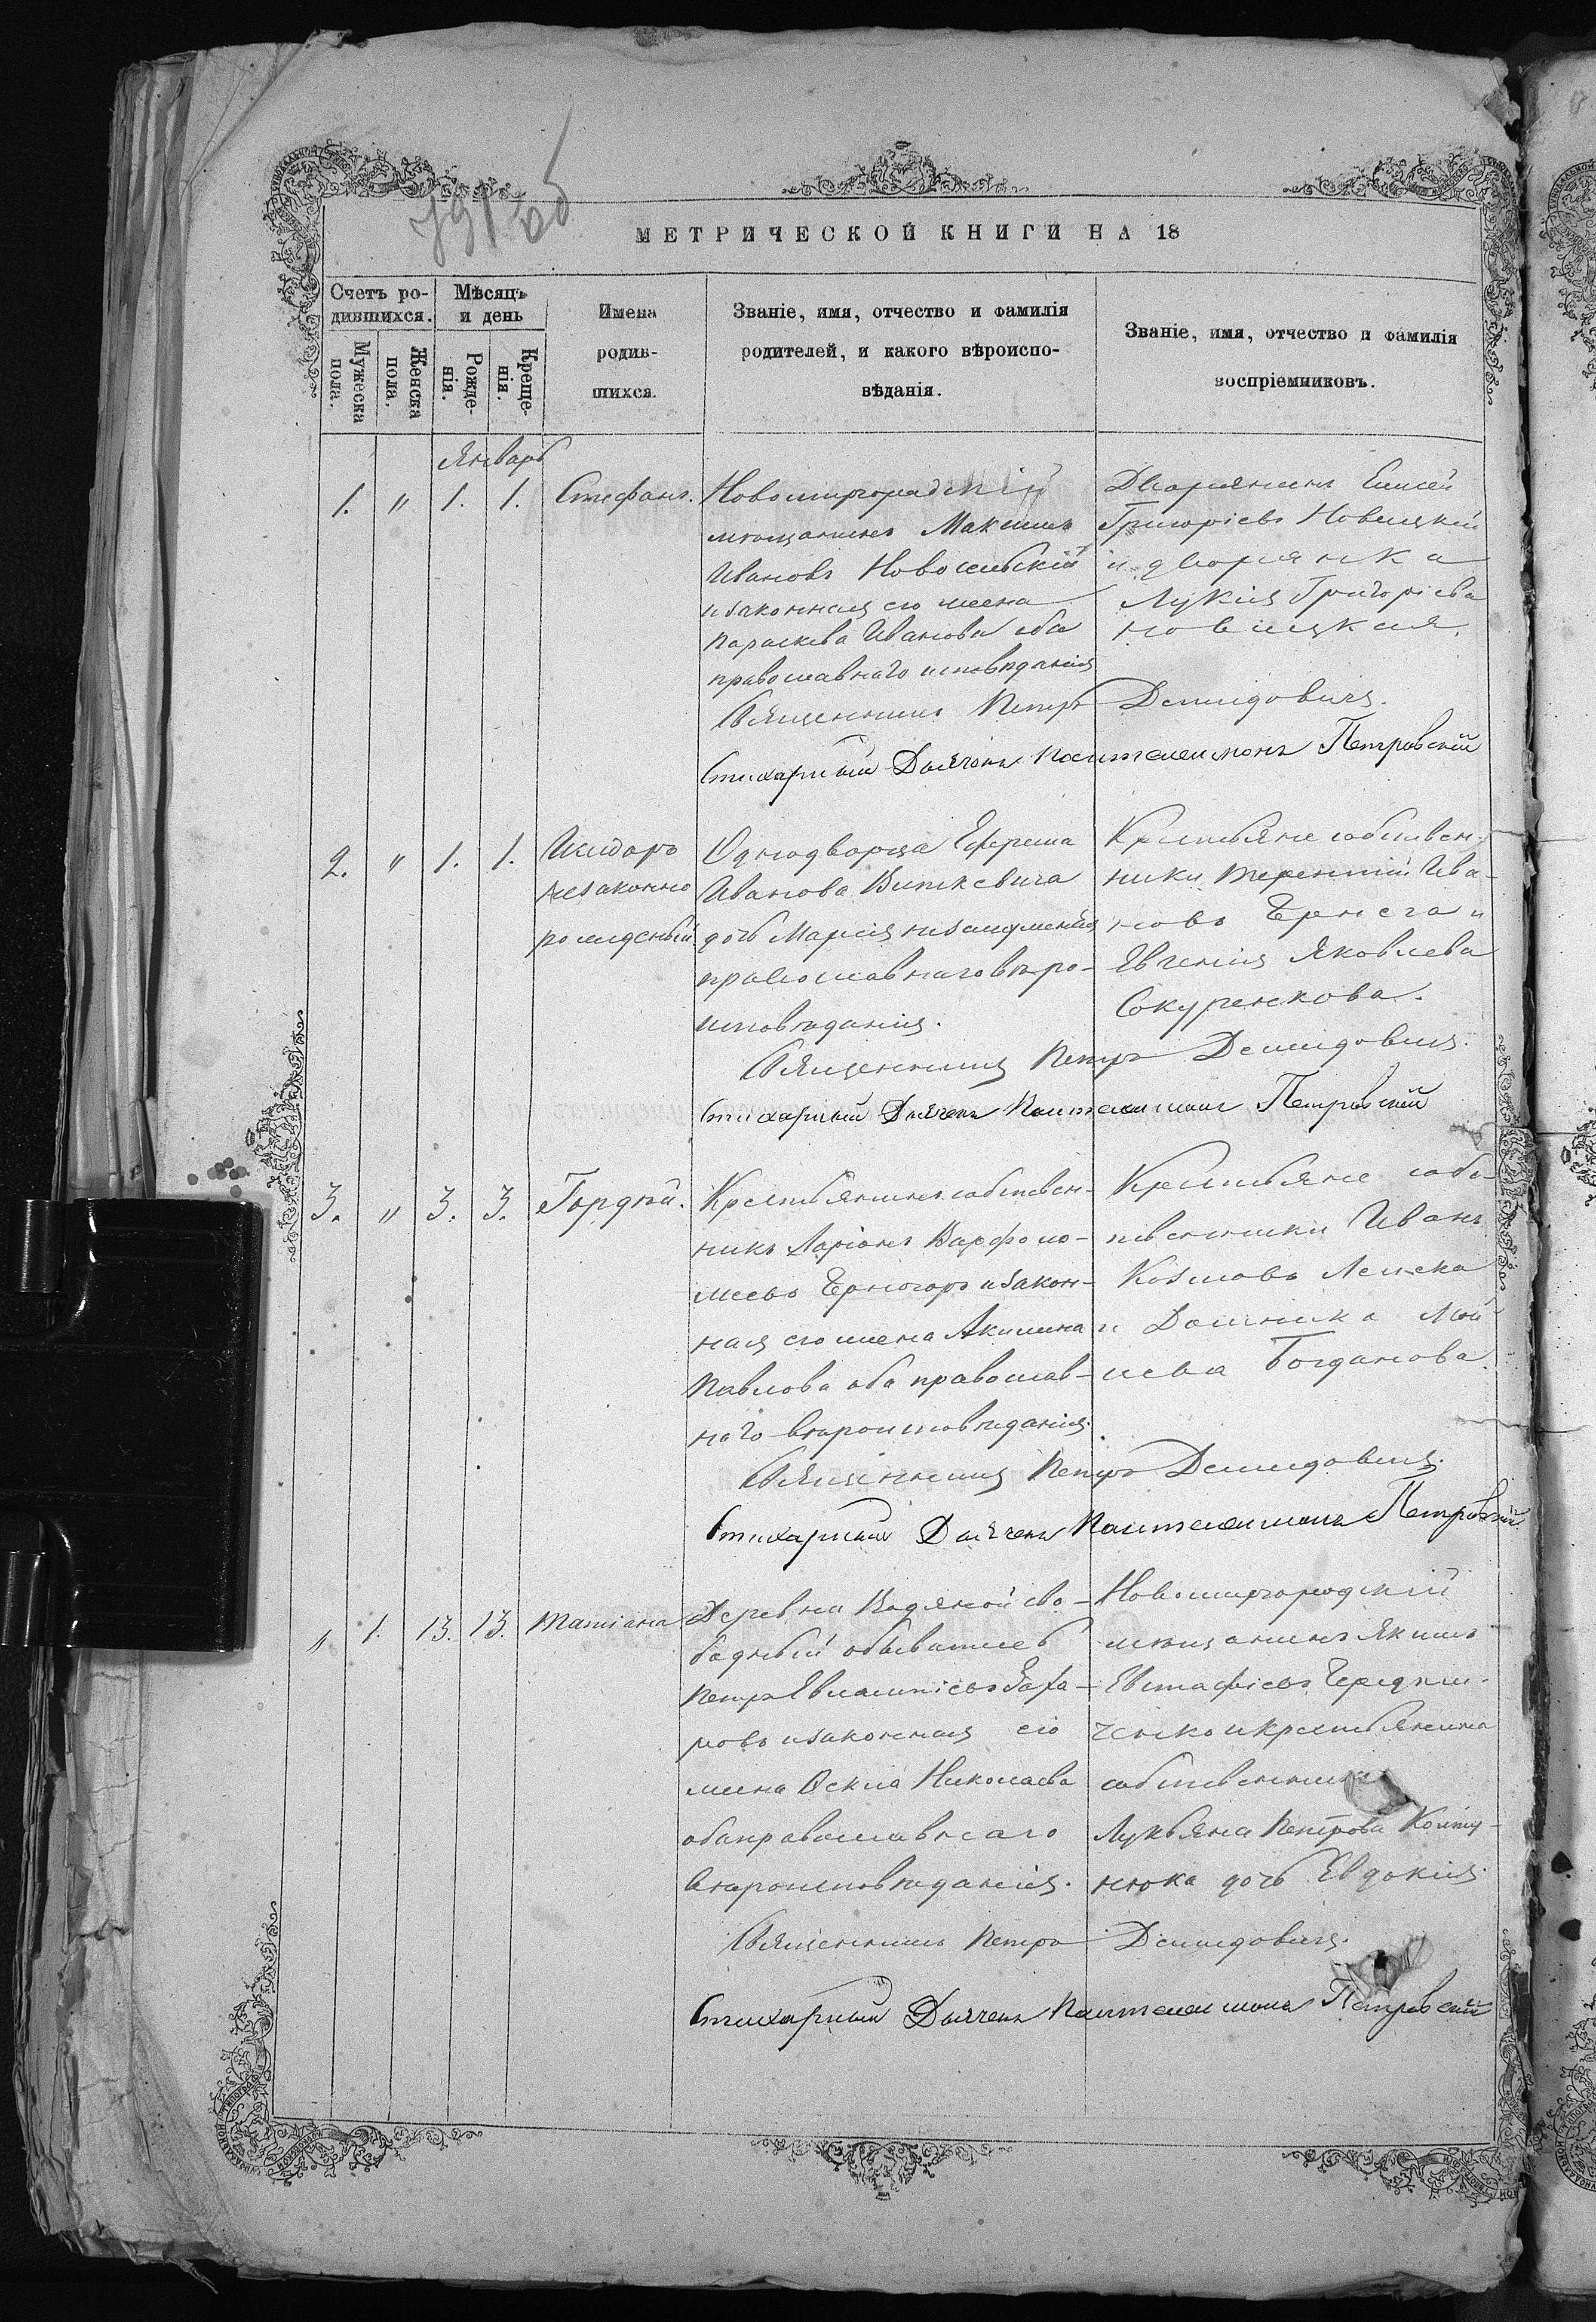 791 об
МЕТРИЧЕСКОЙ КНИГИ НА 18
Счетъ ро-
дившихся.
Мѣсяцъ
и день
Мужска
пола.
Женска
пола.
Рожде-
нія.
Креще-
нія.
Имена
родив-
шихся.
Званіе, имя, отчество и фамилія
родителей, и какого вѣроиспо-
вѣданія.
Званіе, имя, отчество и фамилія
воспріемниковъ.
Январь
1. " 1. 1. Стефанъ.
Новомиргородскій
мѣщанинъ Максимъ
Ивановъ Новосельскій
и законная его жена
Параскева Иванова оба
православнаго исповѣданія
Дворянинъ Елисей
Григорієвъ Новицкій
и дворянка
Лукія Григорієва
Новицкая.
Священникъ Петръ Демидовичъ.
Стихарный Дьячокъ Пантелеимонъ Петровскій
2. " 1. 1. Исидоръ
незаконно
рожденый
Однодворца Ефрема
Иванова Виткевича
дочь Марія незамужняя
православнаго вѣро-
исповѣданія.
Крестьяне собствен-
ники Терентій Ива-
новъ Чернега и
Евгенія Яковлева
Сокуренкова.
Священникъ Петръ Демидовичъ.
Стихарный Дьячекъ Пантелеимонъ Петровскій
3. " 3. 3. Гордѣй.
Крестьянинъ собствен-
никъ Ларіонъ Варфоло-
меевъ Черногоръ и закон-
ная его жена Акилина
Павлова оба православ-
наго вѣроисповѣданія.
Крестьяне соб-
ственники Иванъ
Козмовъ
и Домника Мои-
сеева Богданова.
Священникъ Петръ Демидовичъ.
Стихарный Дьячекъ Пантелеимонъ Петровскій
" 1. 13. 13. Татіана
Деревни Водяной сво-
бодный обыватель
Петръ Заха-
ровъ и законная его
жена Николаева
оба православнаго
вѣроисповѣданія.
Новомиргородскій
мѣщанинъ Якимъ
Евстафіевъ Чередни-
ченко и крестьянина
собственника
Лукьяна Петрова Колту-
нюка дочь Евдокія.
Священникъ Петръ Демидовичъ.
Стихарный Дьячекъ Пантелеимонъ Петровскій